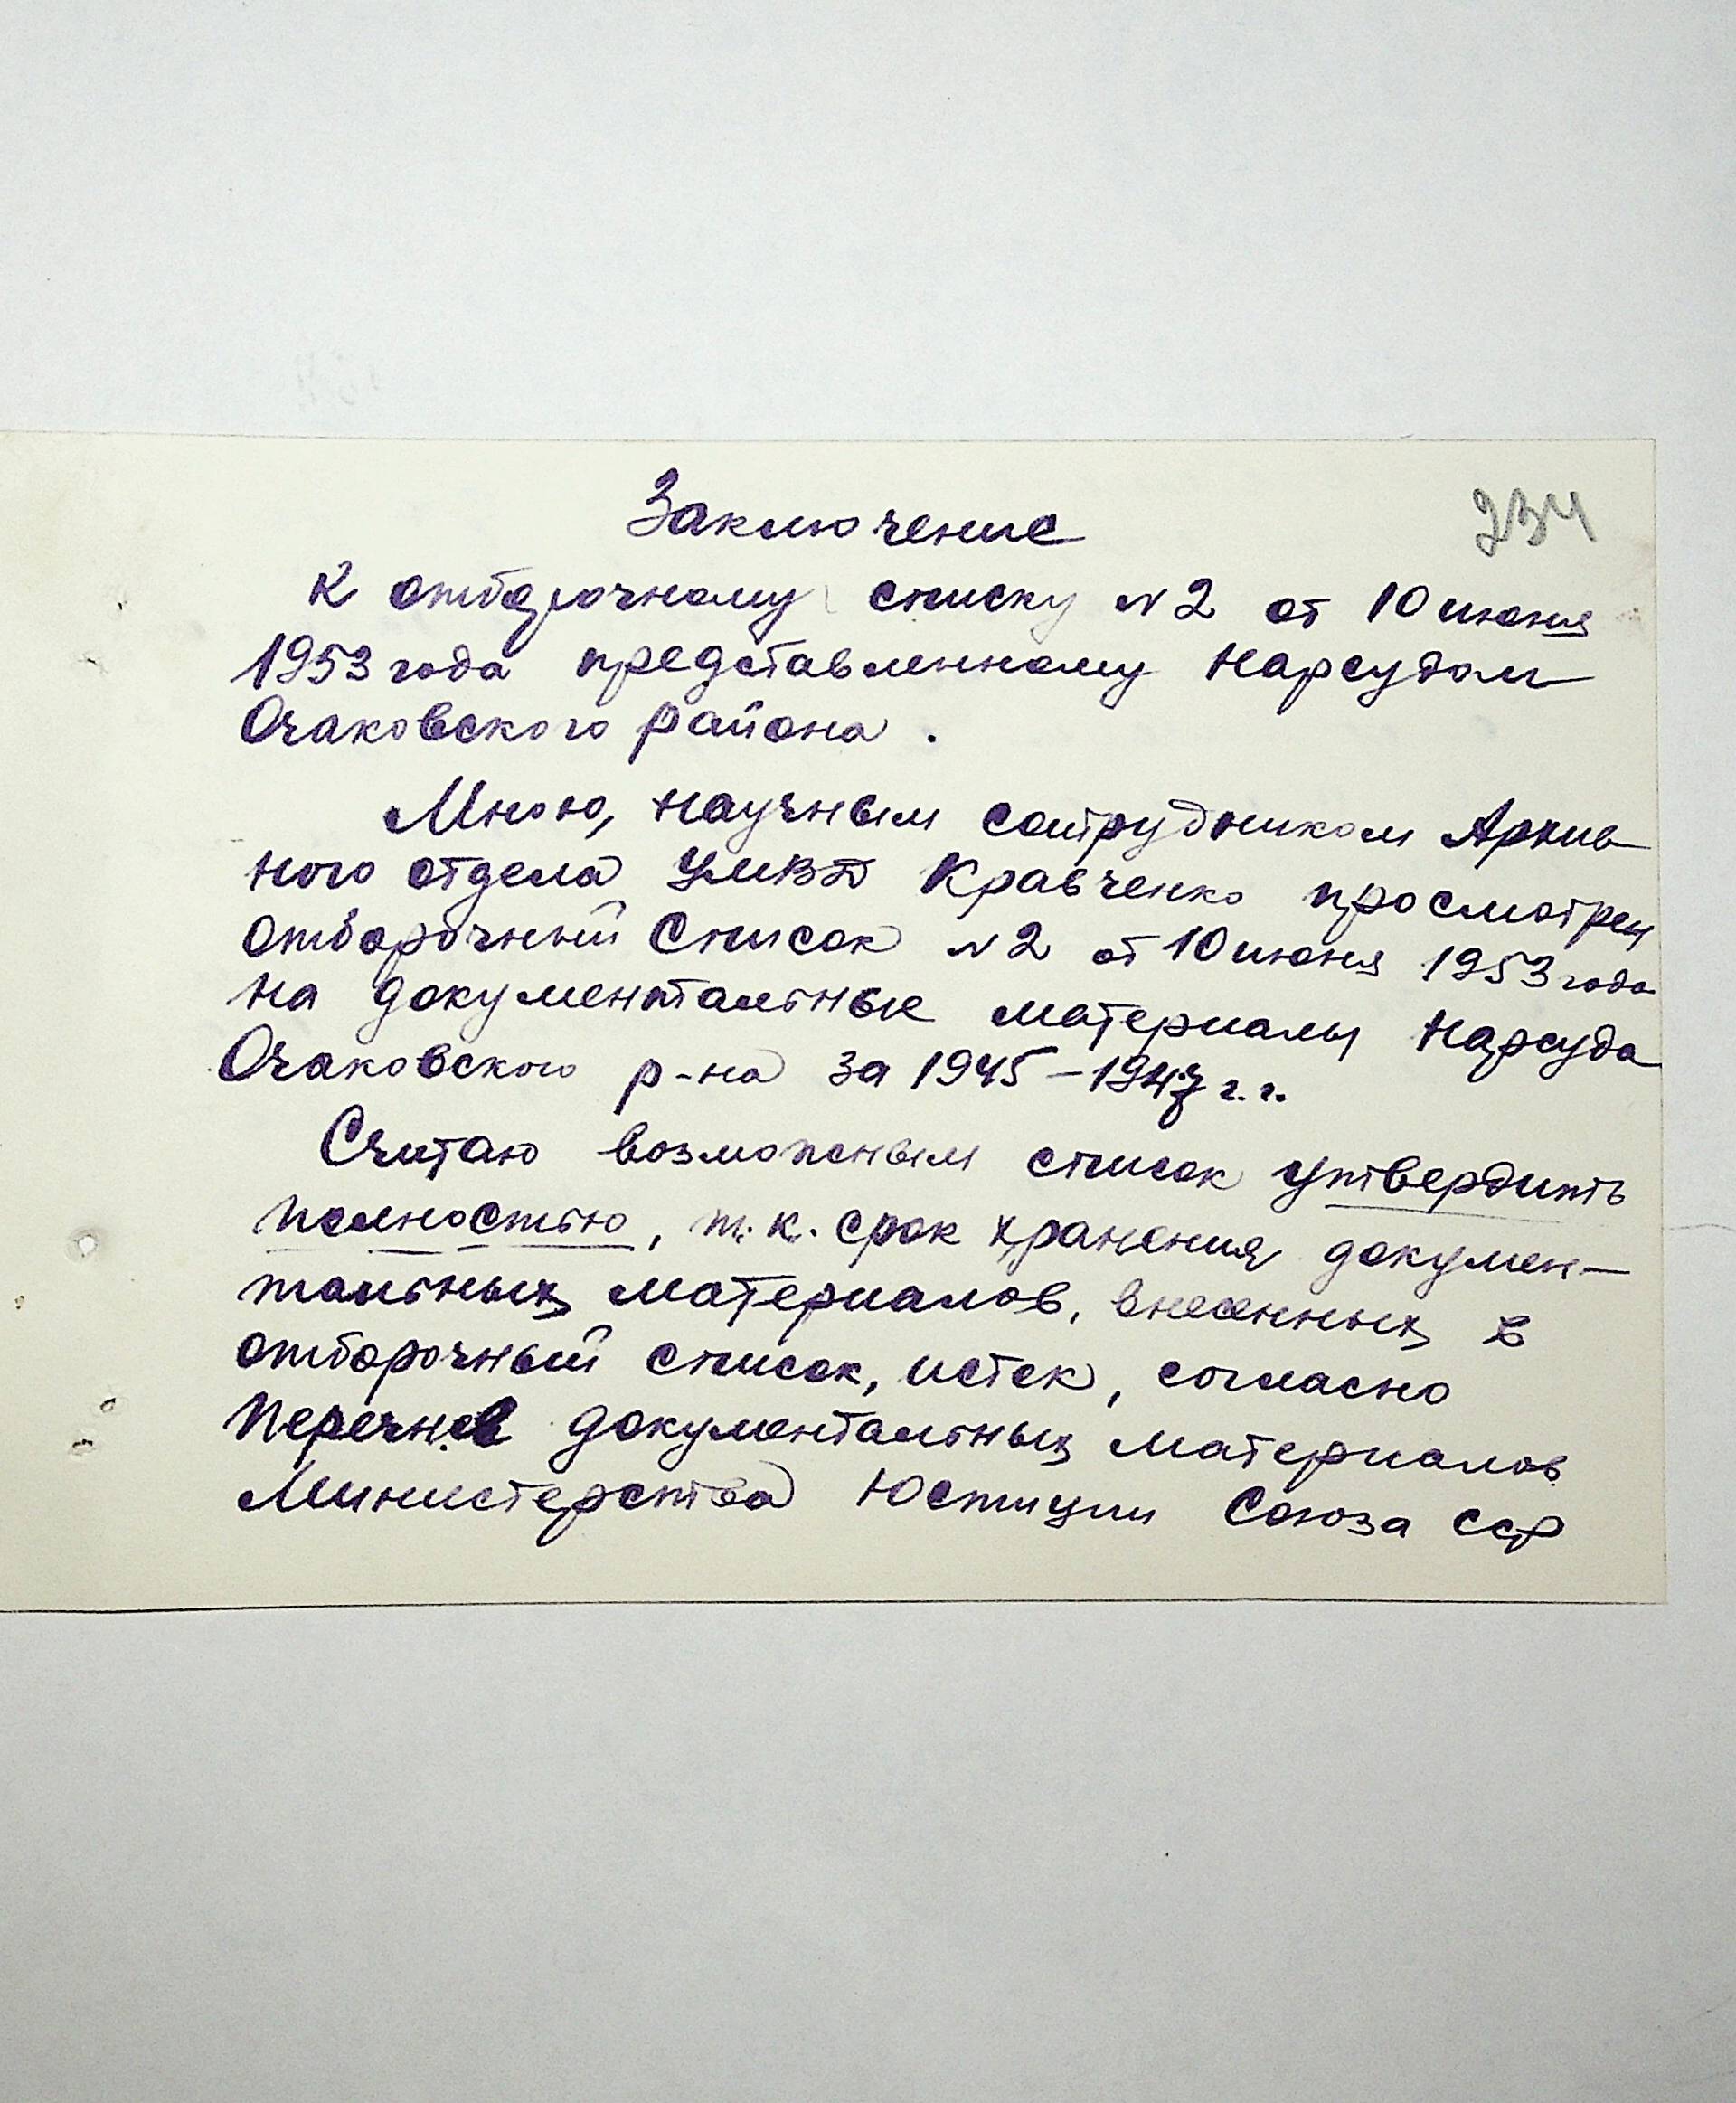 Заключение
234
К отборочному списку N2 от 10 июня
1953 года представленному Нарсудом
Очаковского района.
Мною, научным сотрудником Архив
ного отдела УМВД Кравченко просмотрен
отборочный список N2 от 10 июня 1953 года
на документальные материалы Нарсуда
Очаковского р-на за 1945-1947 г.г.
Считаю возможным список утвердить
полностью, т.к. срок хранения докумен-
тальных материалов, внесенных в
отборочный список, истек, согласно
Перечнев документальных материалов
Министерства Юстиции Союза ССР